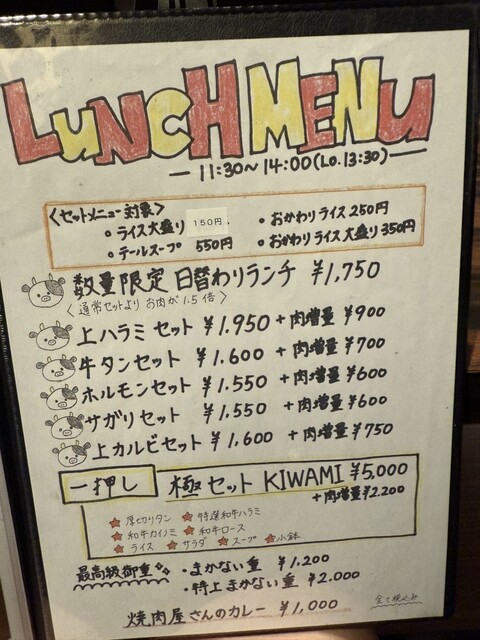 LUNCH MENU
11:30~14:00(LO.13:30)
<セットメニュー対象>
・ライス大盛り 150円.
・おかわりライス 250円
・テールスープ 550円
・おかわりライス大盛り 350円
数量限定 日替わりランチ ¥1,750
<通常セットより お肉が1.5倍>
上ハラミセット ¥1.950 +肉増量 ¥900
牛タンセット ¥1.600 +肉増量 ¥700
ホルモンセット ¥1.550 +肉増量 ¥600
サガリセット ¥1.550 +肉増量 ¥600
上カルビセット ¥1,600 +肉増量 ¥750
一押し 極セット KIWAMI ¥5,000
+肉増量 ¥2.200
★厚切りタン ★特選和牛ハラミ
★和牛カイノミ ★和牛ロース
★ライス ★サラダ ★スープ ★小鉢
最高級御重 ・まかない重 ¥1.200
・特上まかない重 ¥2.000
焼肉屋さんのカレー ¥1,000
全て税込み